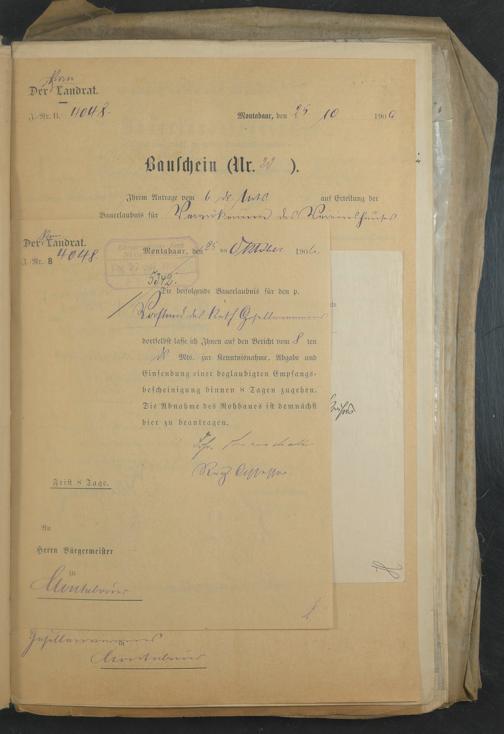 Der Landrat.
J.-Nr. II. 4048.
Montabaur, den 25 / 10 190
Bauschein (Nr. ).
Ihrem Antrage vom 6. ds. Mts. auf Erteilung der
Bauerlaubnis für des Vereinshauses
Der Landrat.
J.-Nr. 8 4048
Montabaur, den 25 ten Oktober 190
5342.
Die beifolgende Bauerlaubnis für den p.
Vorstand des Kath Gesellenvereins
dortselbst lasse ich Ihnen auf den Bericht vom 8 ten
ds Mts. zur Kenntnisnahme, Abgabe und
Einsendung einer beglaubigten Empfangs-
bescheinigung binnen 8 Tagen zugehen.
Die Abnahme des Rohbaues ist demnächst
hier zu beantragen.
Reg Assessor
Frist 8 Tage.
An
Herrn Bürgermeister
in
Montabaur
Gesellenvereins
in
Montabaur